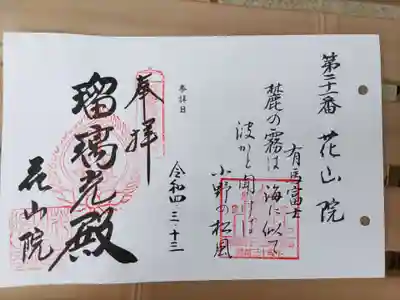 第二十一番 花山院
有馬富士
麓の霧は海に似て
波かと聞けば
小野の松風
参拝日
令和四・三・十三
奉拝
瑠璃光殿
花山院